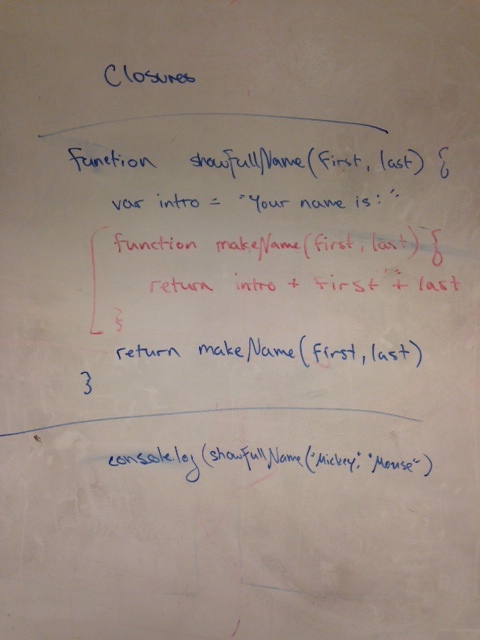 Closures
function showFullName(first, last) {
var intro = "Your name is:"
function makeName(first, last) {
return intro + first " + last
}
return makeName(first, last)
}
console.log(showFullName("Mickey", "Mouse")